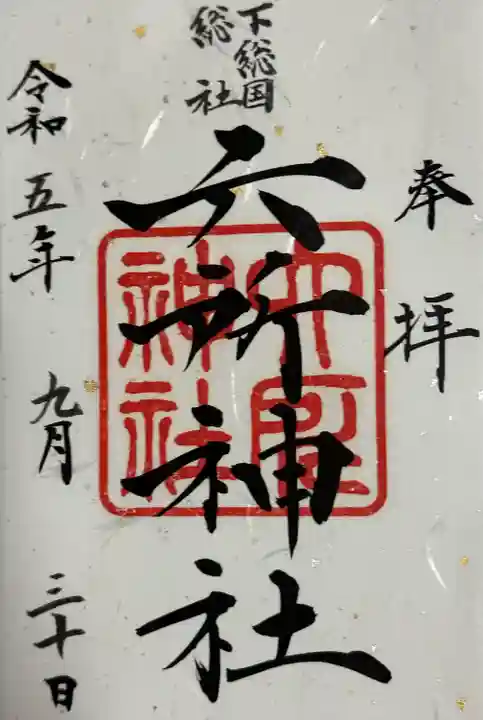 奉拝
下総国
総社
六所神社
六所
神社
令和五年九月三十日